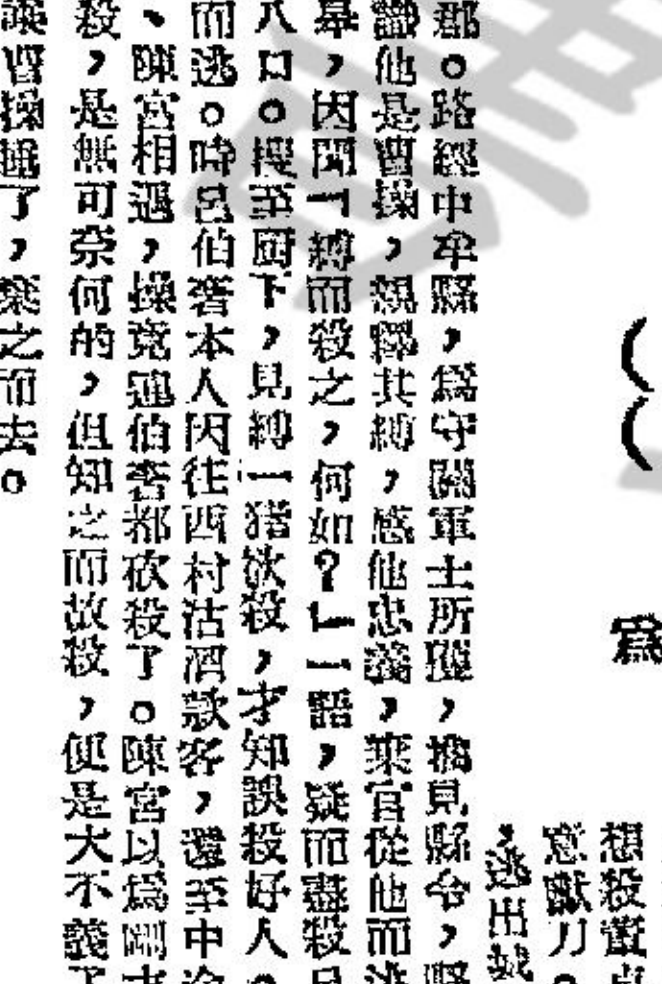 想殺董卓
意獻刀。
，逃出城
郡。路經中牟縣，爲守關軍士所獲，擒見縣令，縣
識他是曹操，親釋其縛，感他忠義，棄官從他而逃
，因聞「縛而殺之，何如？」一語，疑而盡殺呂
八口。搜至廚下，見縛一猪欲殺，才知誤殺好人。
而逃。時呂伯奢本人因往西村沽酒款客，還至中途
、陳宮相遇，操竟連伯奢都砍殺了。陳宮以爲
殺，是無可奈何的，但知之而故殺，便是大不義了
曹操了，棄之而去。